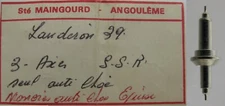 Sté MAINGOURD - ANGOULÊME
Landeron 39
3 - Axes S.S.R.
seul anti choc